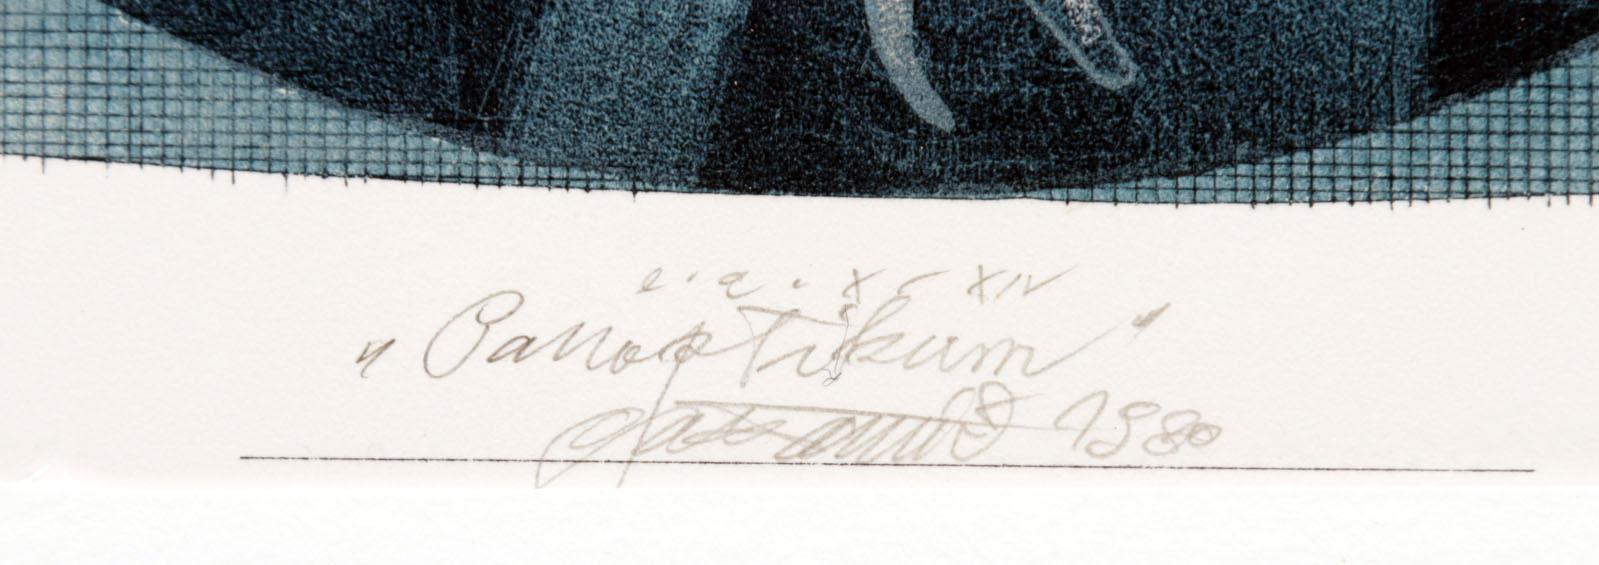 e. a. X - XIV
„Panoptikum"
1980